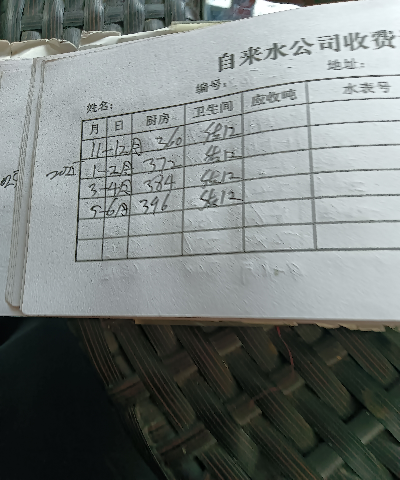 自来水公司收费
编号: 地址:
姓名:
月 日 厨房 卫生间 应收吨 水表号
11-12月 260
2025 1-2月 372
3-4月 384
5-6月 396